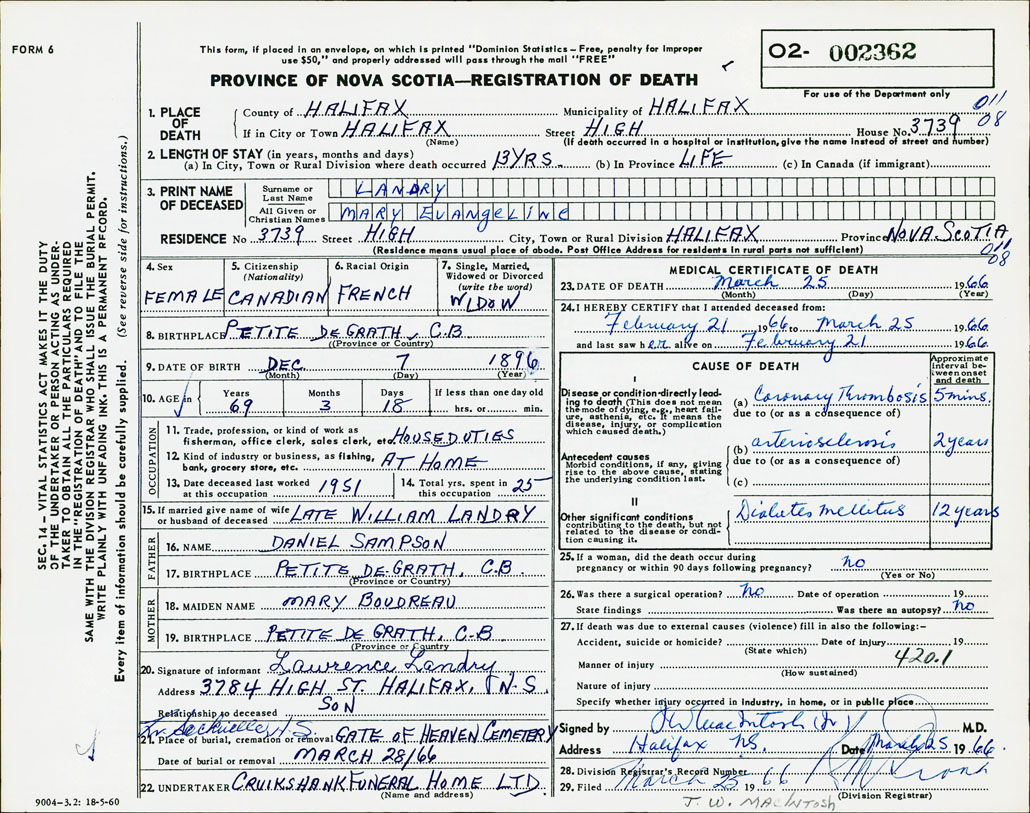 FORM 6
This form, if placed in an envelope, on which is printed "Dominion Statistics – Free, penalty for improper
use $50," and properly addressed will pass through the mail "FREE"
PROVINCE OF NOVA SCOTIA—REGISTRATION OF DEATH
O2- 002362
For use of the Department only
011
08
SEC. 14 – VITAL STATISTICS ACT MAKES IT THE DUTY
OF THE UNDERTAKER OR PERSON ACTING AS UNDER-
TAKER TO OBTAIN ALL THE PARTICULARS REQUIRED
IN THE "REGISTRATION OF DEATH" AND TO FILE THE
SAME WITH THE DIVISION REGISTRAR WHO SHALL ISSUE THE BURIAL PERMIT.
WRITE PLAINLY WITH UNFADING INK. THIS IS A PERMANENT RECORD.
Every item of information should be carefully supplied. (See reverse side for instructions.)
1. PLACE OF DEATH
County of HALIFAX Municipality of HALIFAX
If in City or Town HALIFAX Street HIGH House No. 3739
(Name) (If death occurred in a hospital or institution, give the name instead of street and number)
2. LENGTH OF STAY (in years, months and days)
(a) In City, Town or Rural Division where death occurred 13 YRS. (b) In Province LIFE (c) In Canada (if immigrant)
3. PRINT NAME OF DECEASED
Surname or Last Name LANDRY
All Given or Christian Names MARY EVANGELINE
RESIDENCE No 3739 Street HIGH City, Town or Rural Division HALIFAX Province NOVA SCOTIA
(Residence means usual place of abode. Post Office Address for residents in rural parts not sufficient)
011
08
4. Sex FEMALE
5. Citizenship (Nationality) CANADIAN
6. Racial Origin FRENCH
7. Single, Married, Widowed or Divorced (write the word) WIDOW
8. BIRTHPLACE PETITE DE GRATH, C.B
(Province or Country)
9. DATE OF BIRTH DEC. 7 1896
(Month) (Day) (Year)
10. AGE in Years Months Days If less than one day old
69 3 18 hrs. or min.
OCCUPATION
11. Trade, profession, or kind of work as
fisherman, office clerk, sales clerk, etc. HOUSEDUTIES
12. Kind of industry or business, as fishing,
bank, grocery store, etc. AT HOME
13. Date deceased last worked at this occupation 1951
14. Total yrs. spent in this occupation 25
15. If married give name of wife
or husband of deceased LATE WILLIAM LANDRY
FATHER
16. NAME DANIEL SAMPSON
17. BIRTHPLACE PETITE DE-GRATH, C.B.
(Province or Country)
MOTHER
18. MAIDEN NAME MARY BOUDREAU
19. BIRTHPLACE PETITE DE GRATH, C-B
(Province or Country
20. Signature of informant Lawrence Landry
Address 3784 HIGH ST. HALIFAX, N-S.
Relationship to deceased SON
21. Place of burial, cremation or removal GATE OF HEAVEN CEMETERY
Date of burial or removal MARCH 28/66
22. UNDERTAKER CRUIKSHANK FUNERAL HOME LTD.
(Name and address)
9004–3.2: 18-5-60
MEDICAL CERTIFICATE OF DEATH
23. DATE OF DEATH March 25 1966
(Month) (Day) (Year)
24. I HEREBY CERTIFY that I attended deceased from:
February 21 1966 to March 25 1966
and last saw her alive on February 21 1966
CAUSE OF DEATH
Approximate interval between onset and death
I
Disease or condition directly lead-
ing to death (This does not mean
the mode of dying, e.g., heart fail-
ure, asthenia, etc. It means the
disease, injury, or complication
which caused death.)
(a) Coronary Thrombosis 5 mins.
due to (or as a consequence of)
Antecedent causes
Morbid conditions, if any, giving
rise to the above cause, stating
the underlying condition last.
(b) arteriosclerosis 2 years
due to (or as a consequence of)
(c)
II
Other significant conditions
contributing to the death, but not
related to the disease or condi-
tion causing it.
Diabetes mellitus 12 years
25. If a woman, did the death occur during
pregnancy or within 90 days following pregnancy? no
(Yes or No)
26. Was there a surgical operation? no Date of operation 19
State findings Was there an autopsy? no
27. If death was due to external causes (violence) fill in also the following:–
Accident, suicide or homicide? Date of injury 19
(State which)
420.1
Manner of injury
(How sustained)
Nature of injury
Specify whether injury occurred in industry, in home, or in public place
Signed by MacIntosh M.D.
Address Halifax NS. Date March 25 1966
28. Division Registrar's Record Number
29. Filed March 25 1966
(Division Registrar)
J. W. MACINTOSH